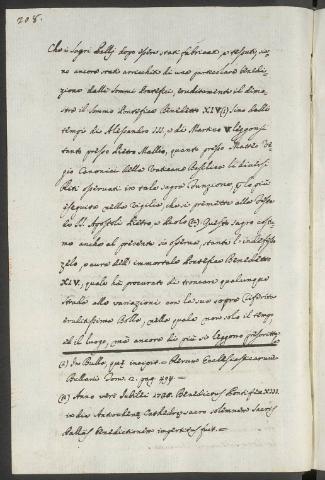 208.
Che i Sagri Pallj dopo essere stati fabricati, e tessuti, sie-
no ancora stati arricchiti di una particolare benedi-
zione dalli Sommi Pontefici, eruditamente il dimo-
stra il Sommo Pontefice Benedetto XIV (1) Sino dalli
tempi di Alesandro III, e di Martino V leggonsi
tanto presso Pietro Mallio, quanto presso Maffeo Ve-
gio Canonici della Vaticana Basilica li diversi
Riti osservati in tale sagra Funzione, per lo più
eseguita nella Vigilia, che si premette alla Festa
de SS. Apostoli Pietro, e Paolo (2). Questo sagro costu-
me anche al presente si osserva, stante l'indefesso
zelo, e cura dell' immortale Pontefice Benedetto
XIV, quale hà procurato di troncare qualunque
strada alle variazioni con la sua sopra riferita
eruditissima Bolla, nella quale non solo il tempo
ed il luogo, mà ancora chi più si leggono prescritte
(1) In Bulla, quae incipit = Rerum Ecclesiasticarum
Bullarii Tom. 2. pag. 494. =
(2) Anno veri Jubilei 1725. Benedictus Pontifex XIII.
in die Antecedenti Cathedrae sacro solemniter Sacris
Palliis benedictionem impertitus fuit. =